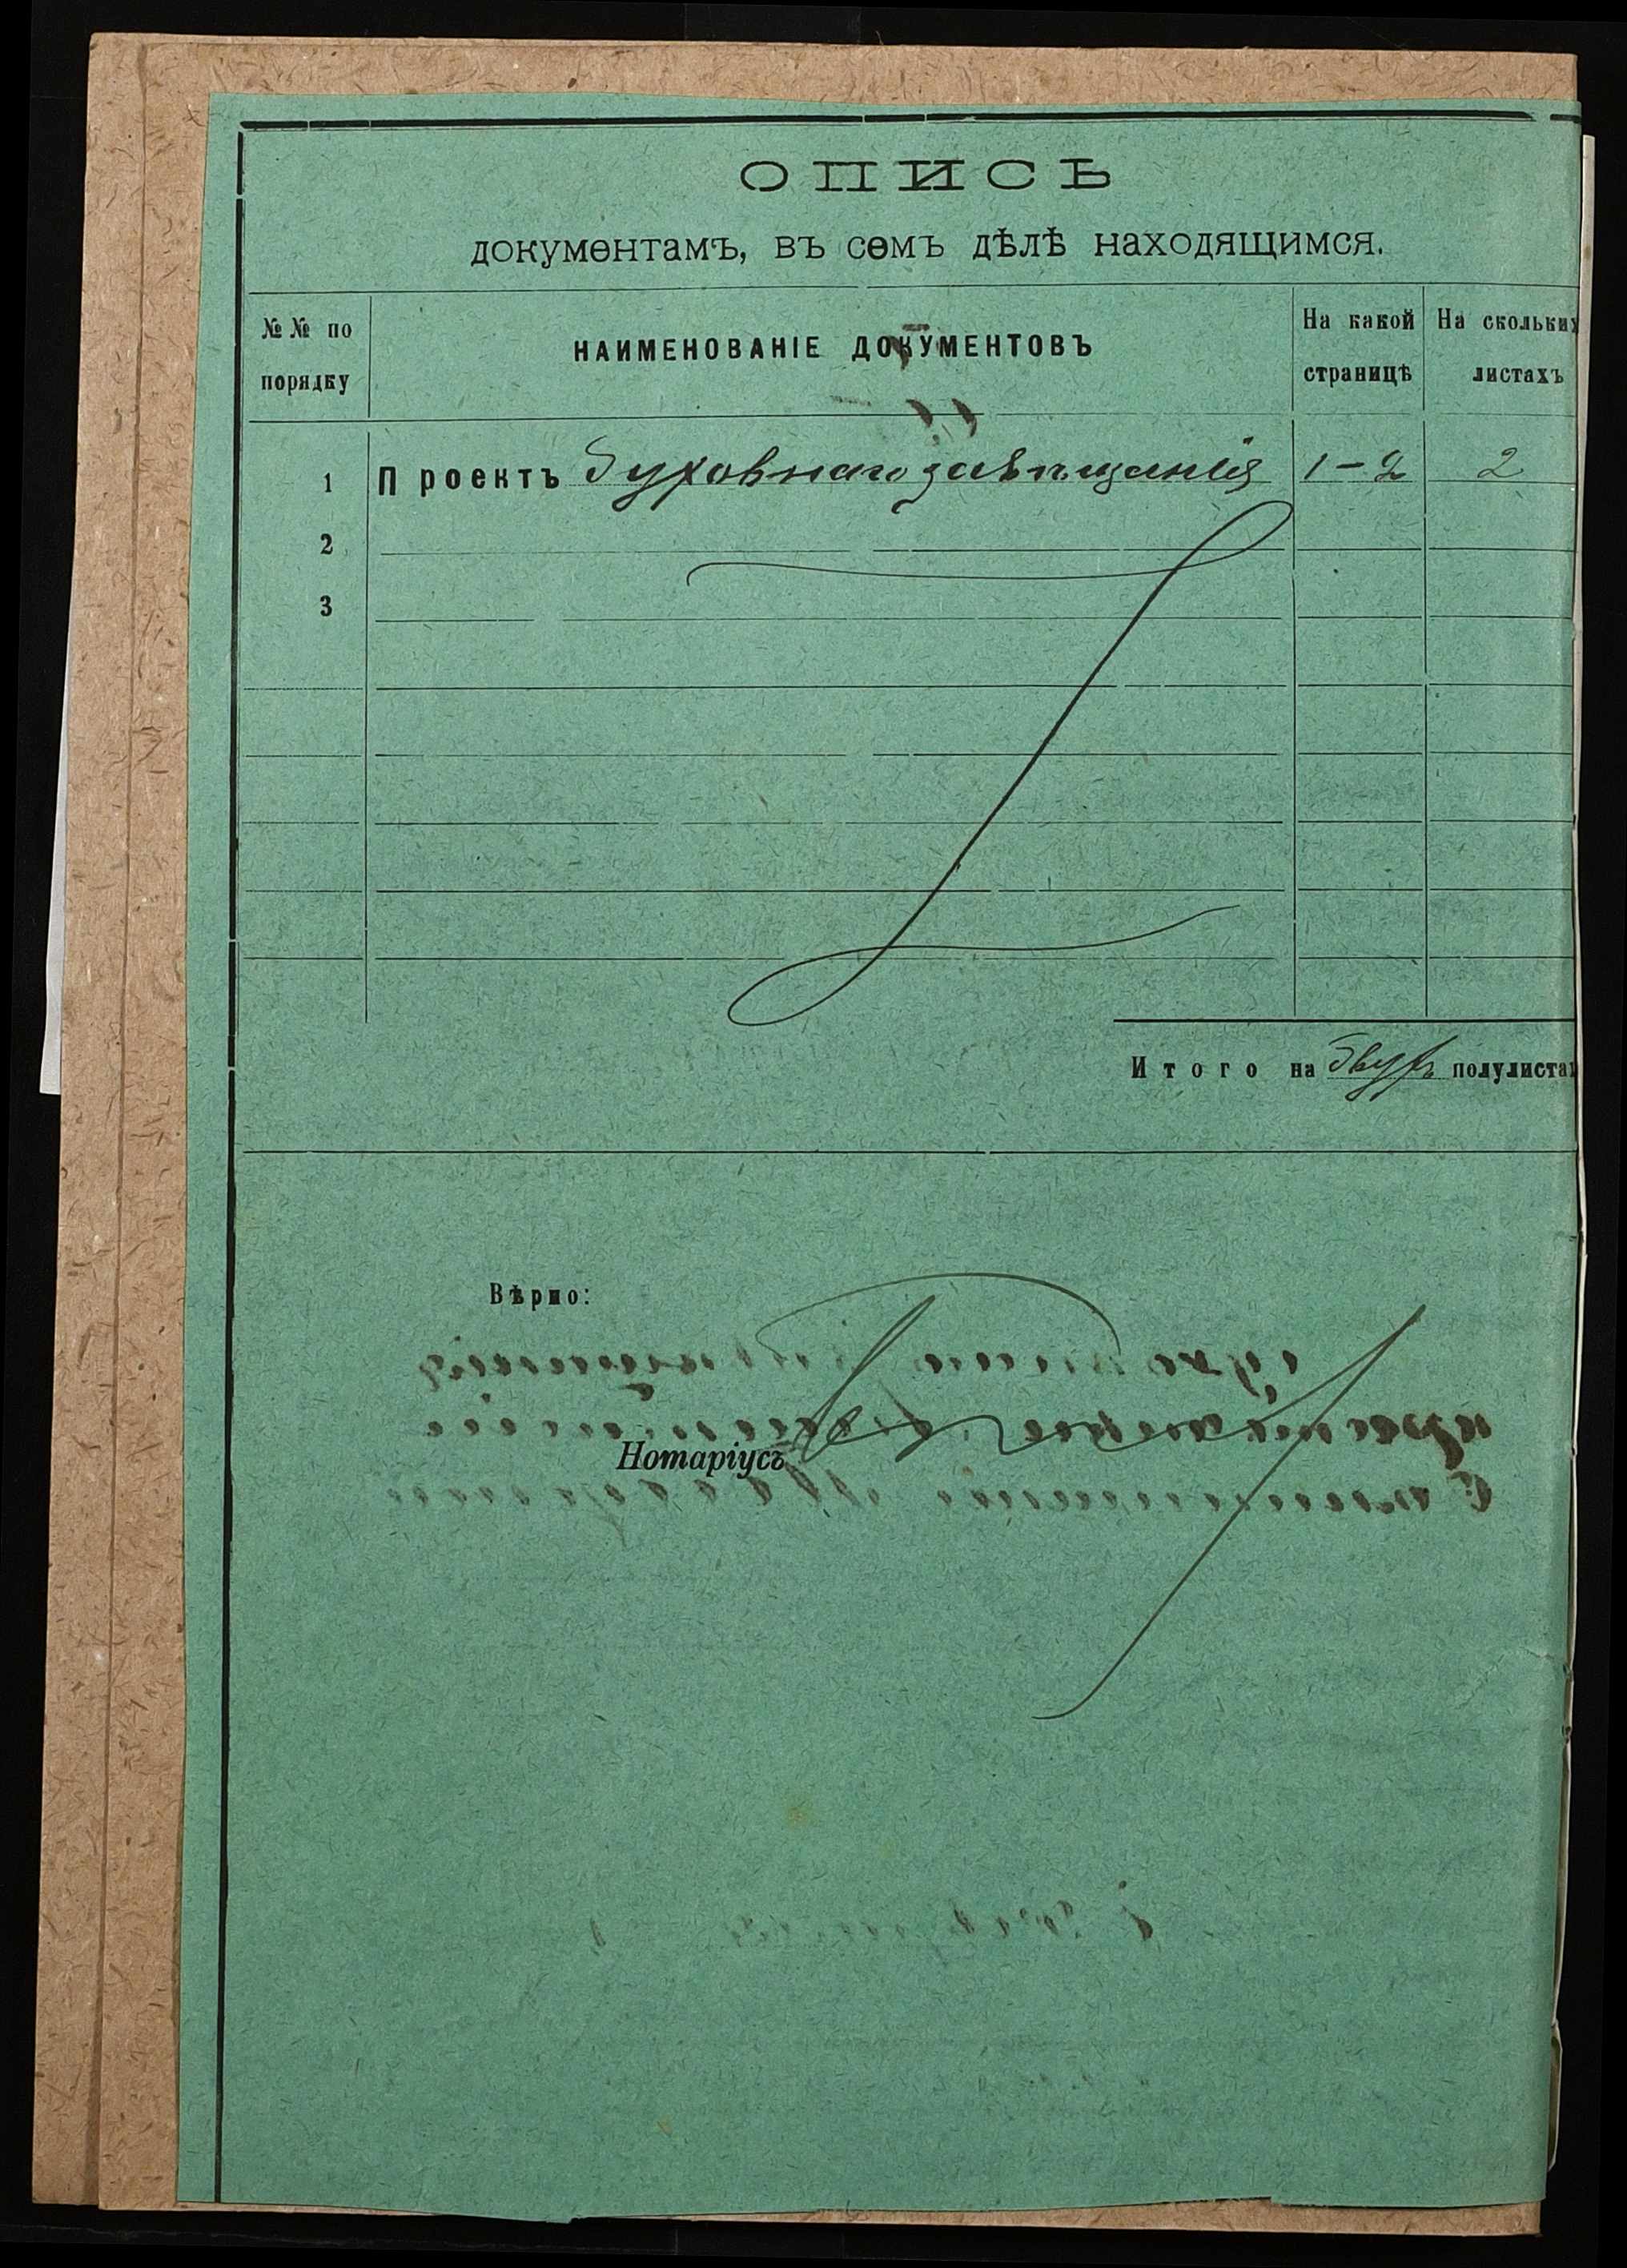 ОПИСЬ
документамъ, въ семъ дѣлѣ находящимся.
№№ по порядку
НАИМЕНОВАНІЕ ДОКУМЕНТОВЪ
На какой страницѣ
На скольких листахъ
1 Проектъ духовнаго завѣщанія 1-2 2
2
3
Итого на двухъ полулистах
Вѣрно:
Нотаріусъ